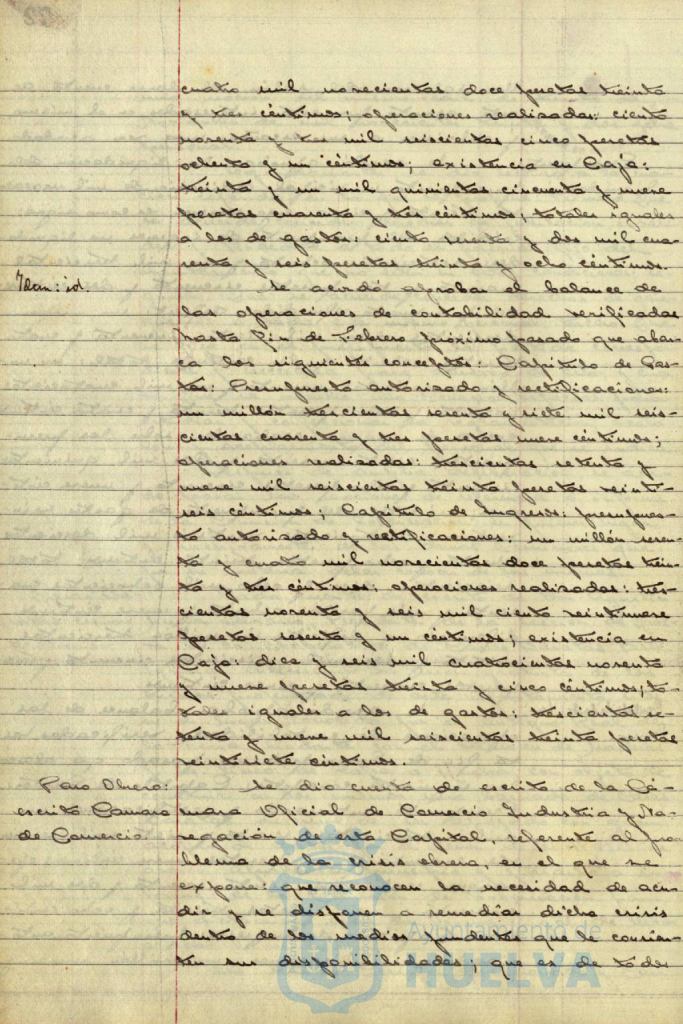 cuatro mil novecientas doce pesetas treinta
y tres céntimos; operaciones realizadas: ciento
noventa y tres mil seiscientas cinco pesetas
ochenta y un céntimos; existencia en Caja:
treinta y un mil quinientas cincuenta y nueve
pesetas cuarenta y tres céntimos; totales iguales
a los de gastos: ciento sesenta y dos mil cua-
renta y seis pesetas treinta y ocho céntimos.
Idem: id.
Se acordó aprobar el balance de
las operaciones de contabilidad verificadas
hasta fin de Febrero próximo pasado que abar-
ca los siguientes conceptos: Capítulo de Gas-
tos: Presupuesto autorizado y rectificaciones:
un millón trescientas sesenta y siete mil seis-
cientas cuarenta y tres pesetas nueve céntimos;
operaciones realizadas: trescientas setenta y
nueve mil seiscientas treinta pesetas veinti-
seis céntimos; Capítulo de Ingresos: presupues-
to autorizado y rectificaciones: un millón
y cuatro mil novecientas doce pesetas trein-
ta y tres céntimos; operaciones realizadas: tres-
cientas noventa y seis mil ciento veintinueve
pesetas sesenta y un céntimos; existencia en
Caja: diez y seis mil cuatrocientas noventa
y nueve pesetas treinta y cinco céntimos; to-
tales iguales a los de gastos: trescientas se-
tenta y nueve mil seiscientas treinta pesetas
veintisiete céntimos.
Paro Obrero:
escrito Camara
de Comercio.
Se dio cuenta de escrito de la Cá-
mara Oficial de Comercio Industria y Na-
vegación de esta Capital, referente al pro-
blema de la crisis obrera, en el que se
expone: que reconocen la necesidad de acu-
dir y se disponen a remediar dicha crisis
dentro de los medios prudentes que le consien-
ten sus disponibilidades; que es de todos
Ayuntamiento de
HUELVA